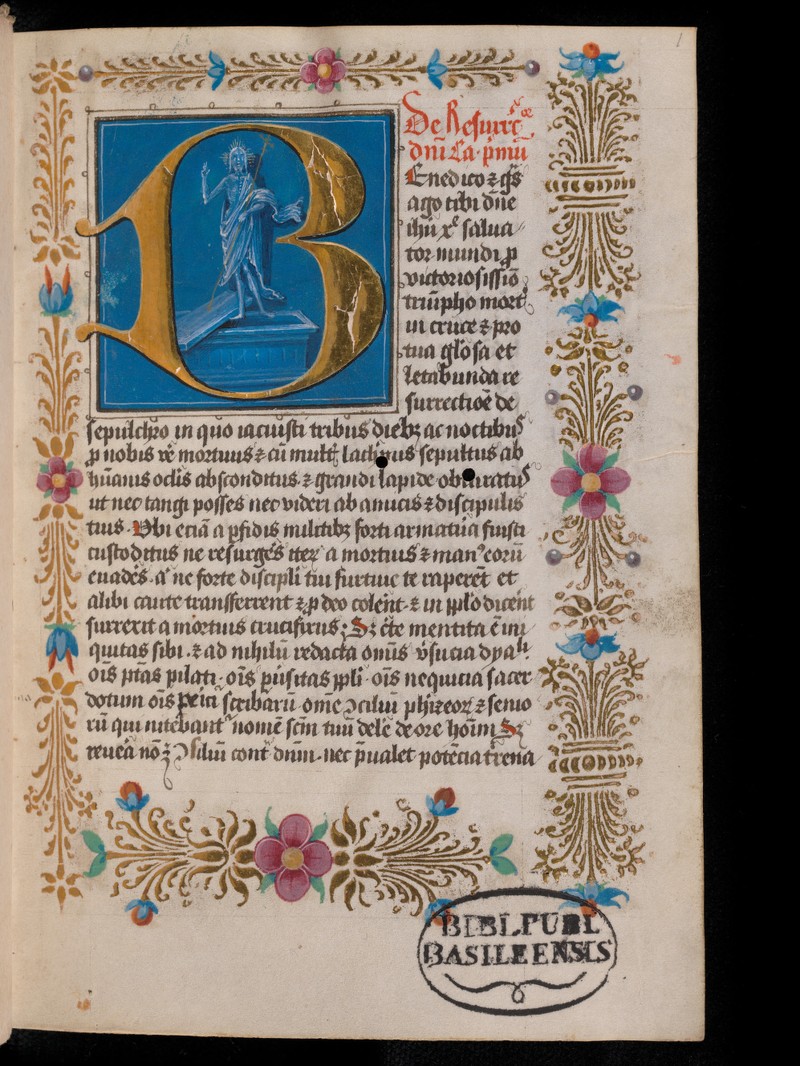 1
De Resurrcōe
dn̄i Ca. pmū
Benedico ⁊ gr̄s
ago tibi dn̄e
ihū xp̄e salua
tor mundi ꝓ
victoriosissiō
triūpho mort᷒
in cruce ⁊ pro
tua gl̄osa et
letabunda re
surrectiōe de
sepulchro in quo iacuisti tribus diebꝫ ac noctibꝰ
ꝓ nobis mortuus ⁊ cū mult᷒ sepultus ab
hūanis oclis absconditus ⁊ grandi lapide
ut nec tangi posses nec videri ab amicis ⁊ discipulis
tuis. Vbi eciā a ꝑfidis militibꝫ forti armatūa fuisti
custoditus ne resurgēs a mortuis ⁊ manꝰ eorū
euadēs. ne forte discipli tui furtiue te raperēt et
alibi caute transferrent ⁊ ꝓ deo colent. ⁊ in pplo dicent
surrexit a mortuis crucifixus; Sꝫ cte mentita ē ini
quitas sibi. ⁊ ad nihilū redacta omīs vsucia dya
oīs ptās pilati. oīs ppli. oīs nequicia sacer
dotum oīs scribarū. ōme ↄciliū phizeoꝝ ⁊ senio
rū qui nitebant nomē scm̄ tuū delē de ore hoīm Sꝫ
reuēa nō ꝫ ↄsiliū cont dnm. nec p̄ualet potēcia trena
BIBL. PUBL
BASILEENSIS